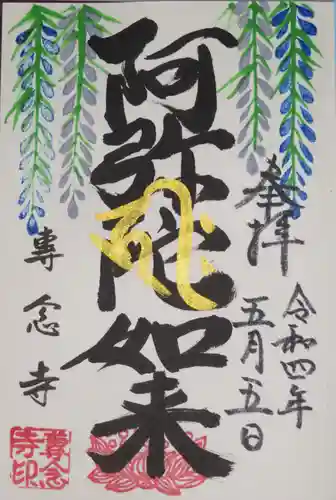 奉拝
令和四年
五月五日
阿弥陀如来
専念寺
專念
寺印